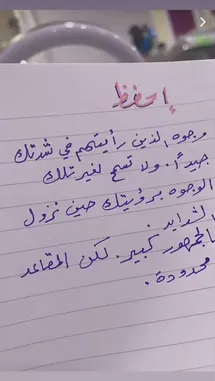 إحفظ
وجوه الذين رأيتهم في شدتك
جيداً. ولا تسمح لغير تلك
الوجوه برؤيتك حين تزول
الشدايد.
الجمهور كبير. لكن المقاعد
محدودة.